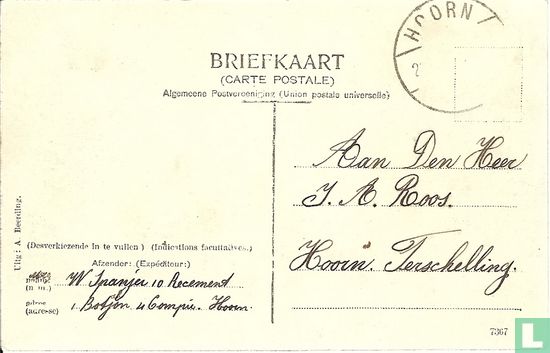 HOORN
2
BRIEFKAART
(CARTE POSTALE)
Algemeene Postvereeniging (Union postale universelle)
Aan Den Heer
J. A. Roos.
Hoorn. Terschelling.
Uitg: A. Beerding.
(Desverkiezende in te vullen) (Indications facultatives.)
Afzender: (Expéditeur:)
naam: W Spanjer 10 Recement
(n m.)
adres 1 Botjon 4 Compie. Hoorn.
(adresse)
7367
L